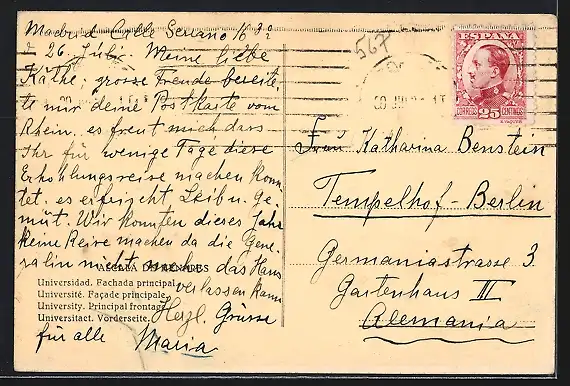 Madrid Calle Serrano 16 3º
d 26. Juli. Meine liebe
Käthe, grosse Freude bereite,
te mir deine Postkarte vom
Rhein. es freut mich dass
Ihr für wenige Tage diese
Erhohlungsreise machen konn,
tet. es erfrischt, Leib u. Ge,
müt. Wir konnten dieses Jahr
keine Reise machen da die Gene,
ralin nicht mehr das Haus
verlassen kann
Herzl. Grüsse
für alle Maria
ALCALÁ DE HENARES
Universidad. Fachada principal.
Université. Façade principale.
University. Principal frontage.
Universitaet. Vorderseite.
567
ESPAÑA
CORREOS 25 CENTIMOS
Frau Katharina Benstein
Tempelhof-Berlin
Germaniastrasse 3
Gartenhaus III
Alemania